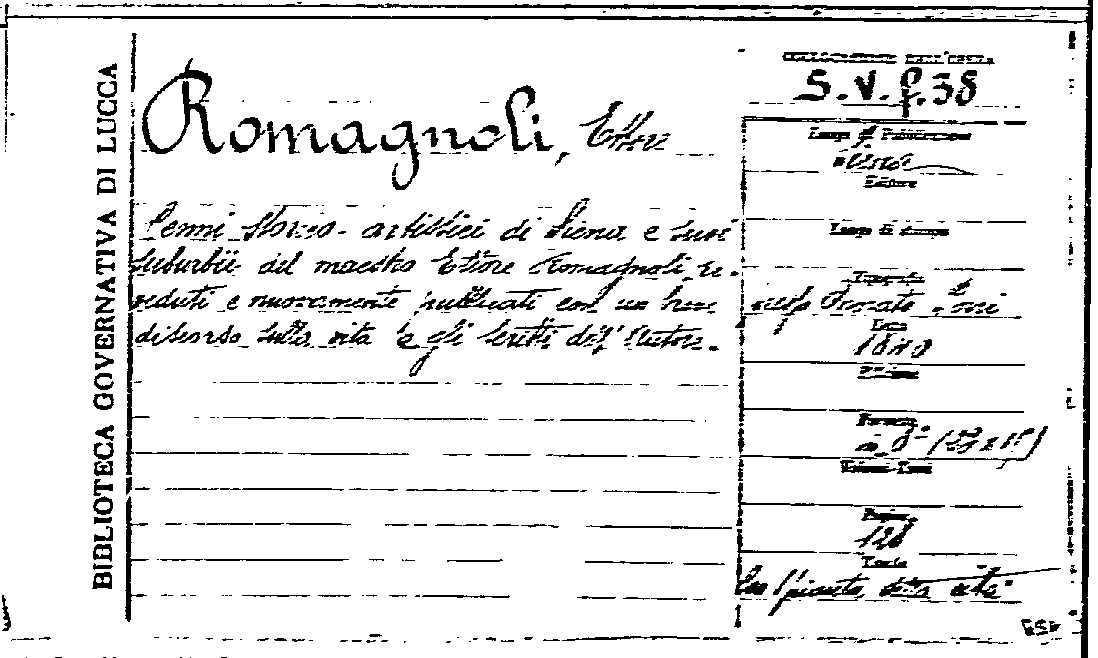 BIBLIOTECA GOVERNATIVA DI LUCCA
S.V. f.38
Romagnoli, Ettore
Luogo di Pubblicazione
Siena
Editore
Cenni storico-artistici di Siena e suoi
Luogo di stampa
suburbii del maestro Ettore Romagnoli, re-
Tipografo
veduti e nuovamente pubblicati con un breve
Onorato Porri
discorso sulla vita e gli scritti dell'Autore.
Data
1840
Edizione
Formato
in 8°
Pagine
128
Tavole
con pianta della città